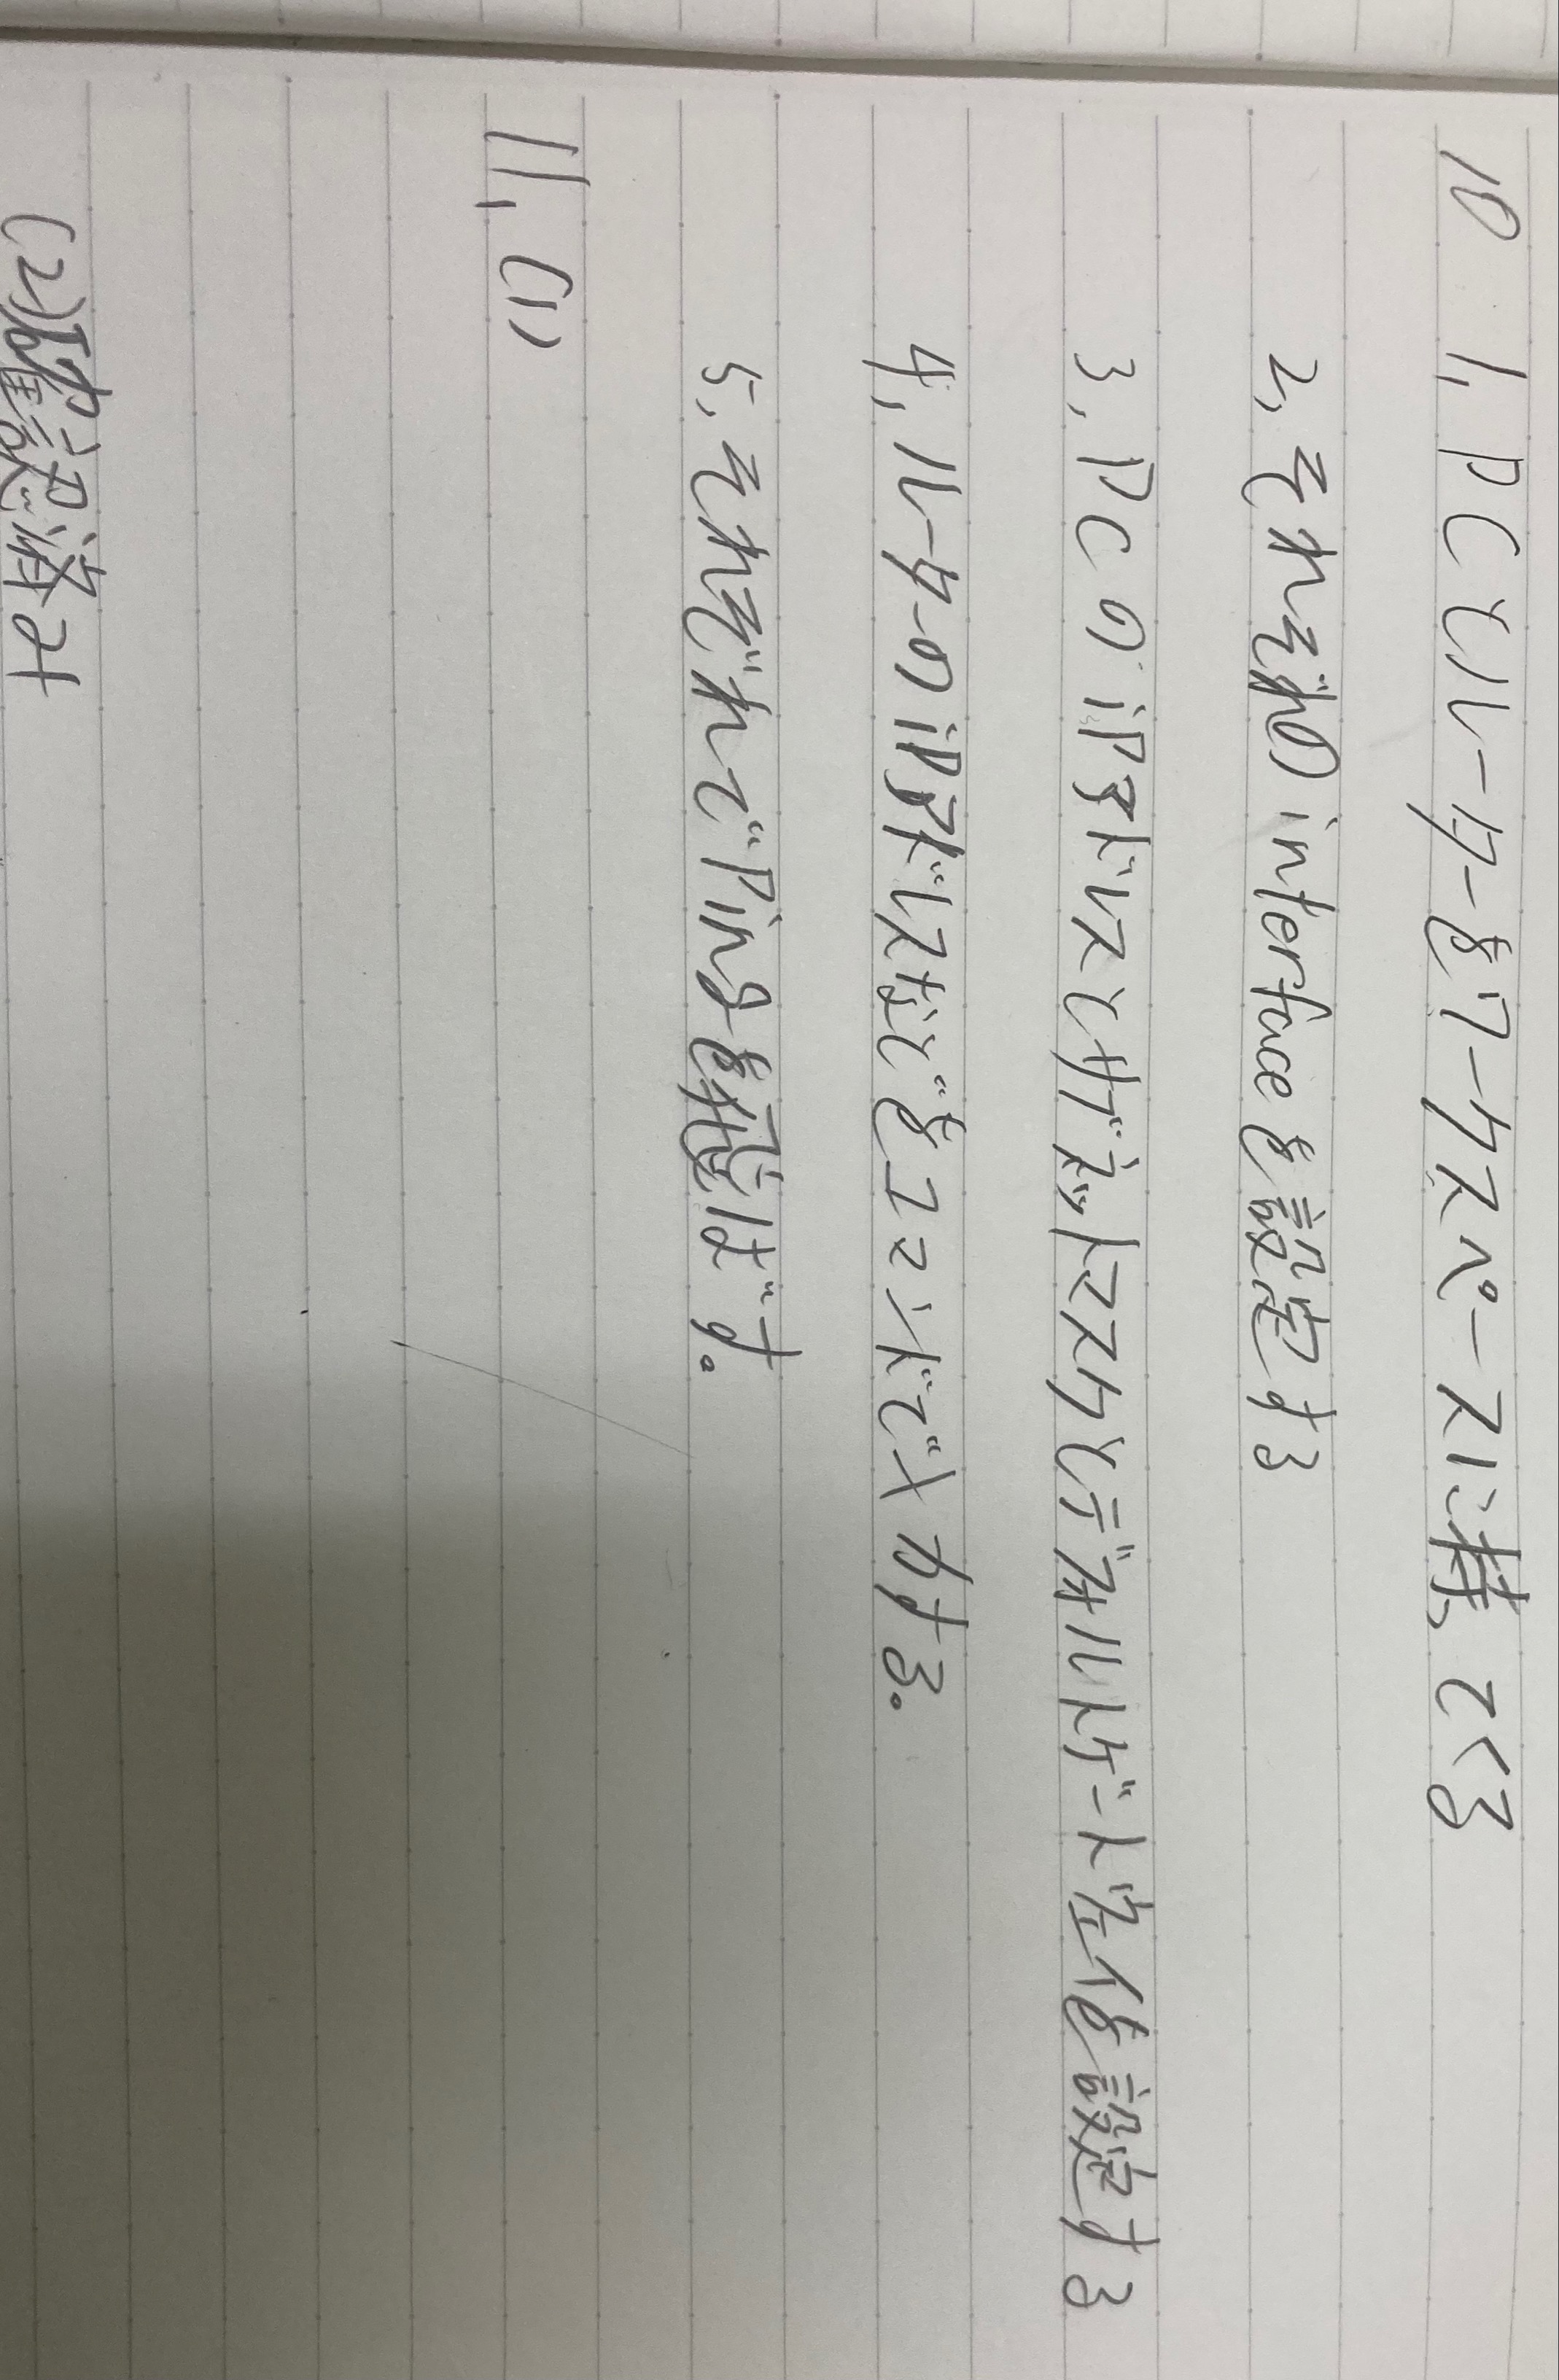 10 1, PCとルーターをワークスペースに持ってくる
2, それぞれの interface を設定する
3, PCのiPアドレスとサブネットマスクとデフォルトゲートウェイを設定する
4, ルーターのiPアドレスなどをコマンドで入力する。
5, それぞれでPingを飛ばす。
11, (1)
(2)確認済み